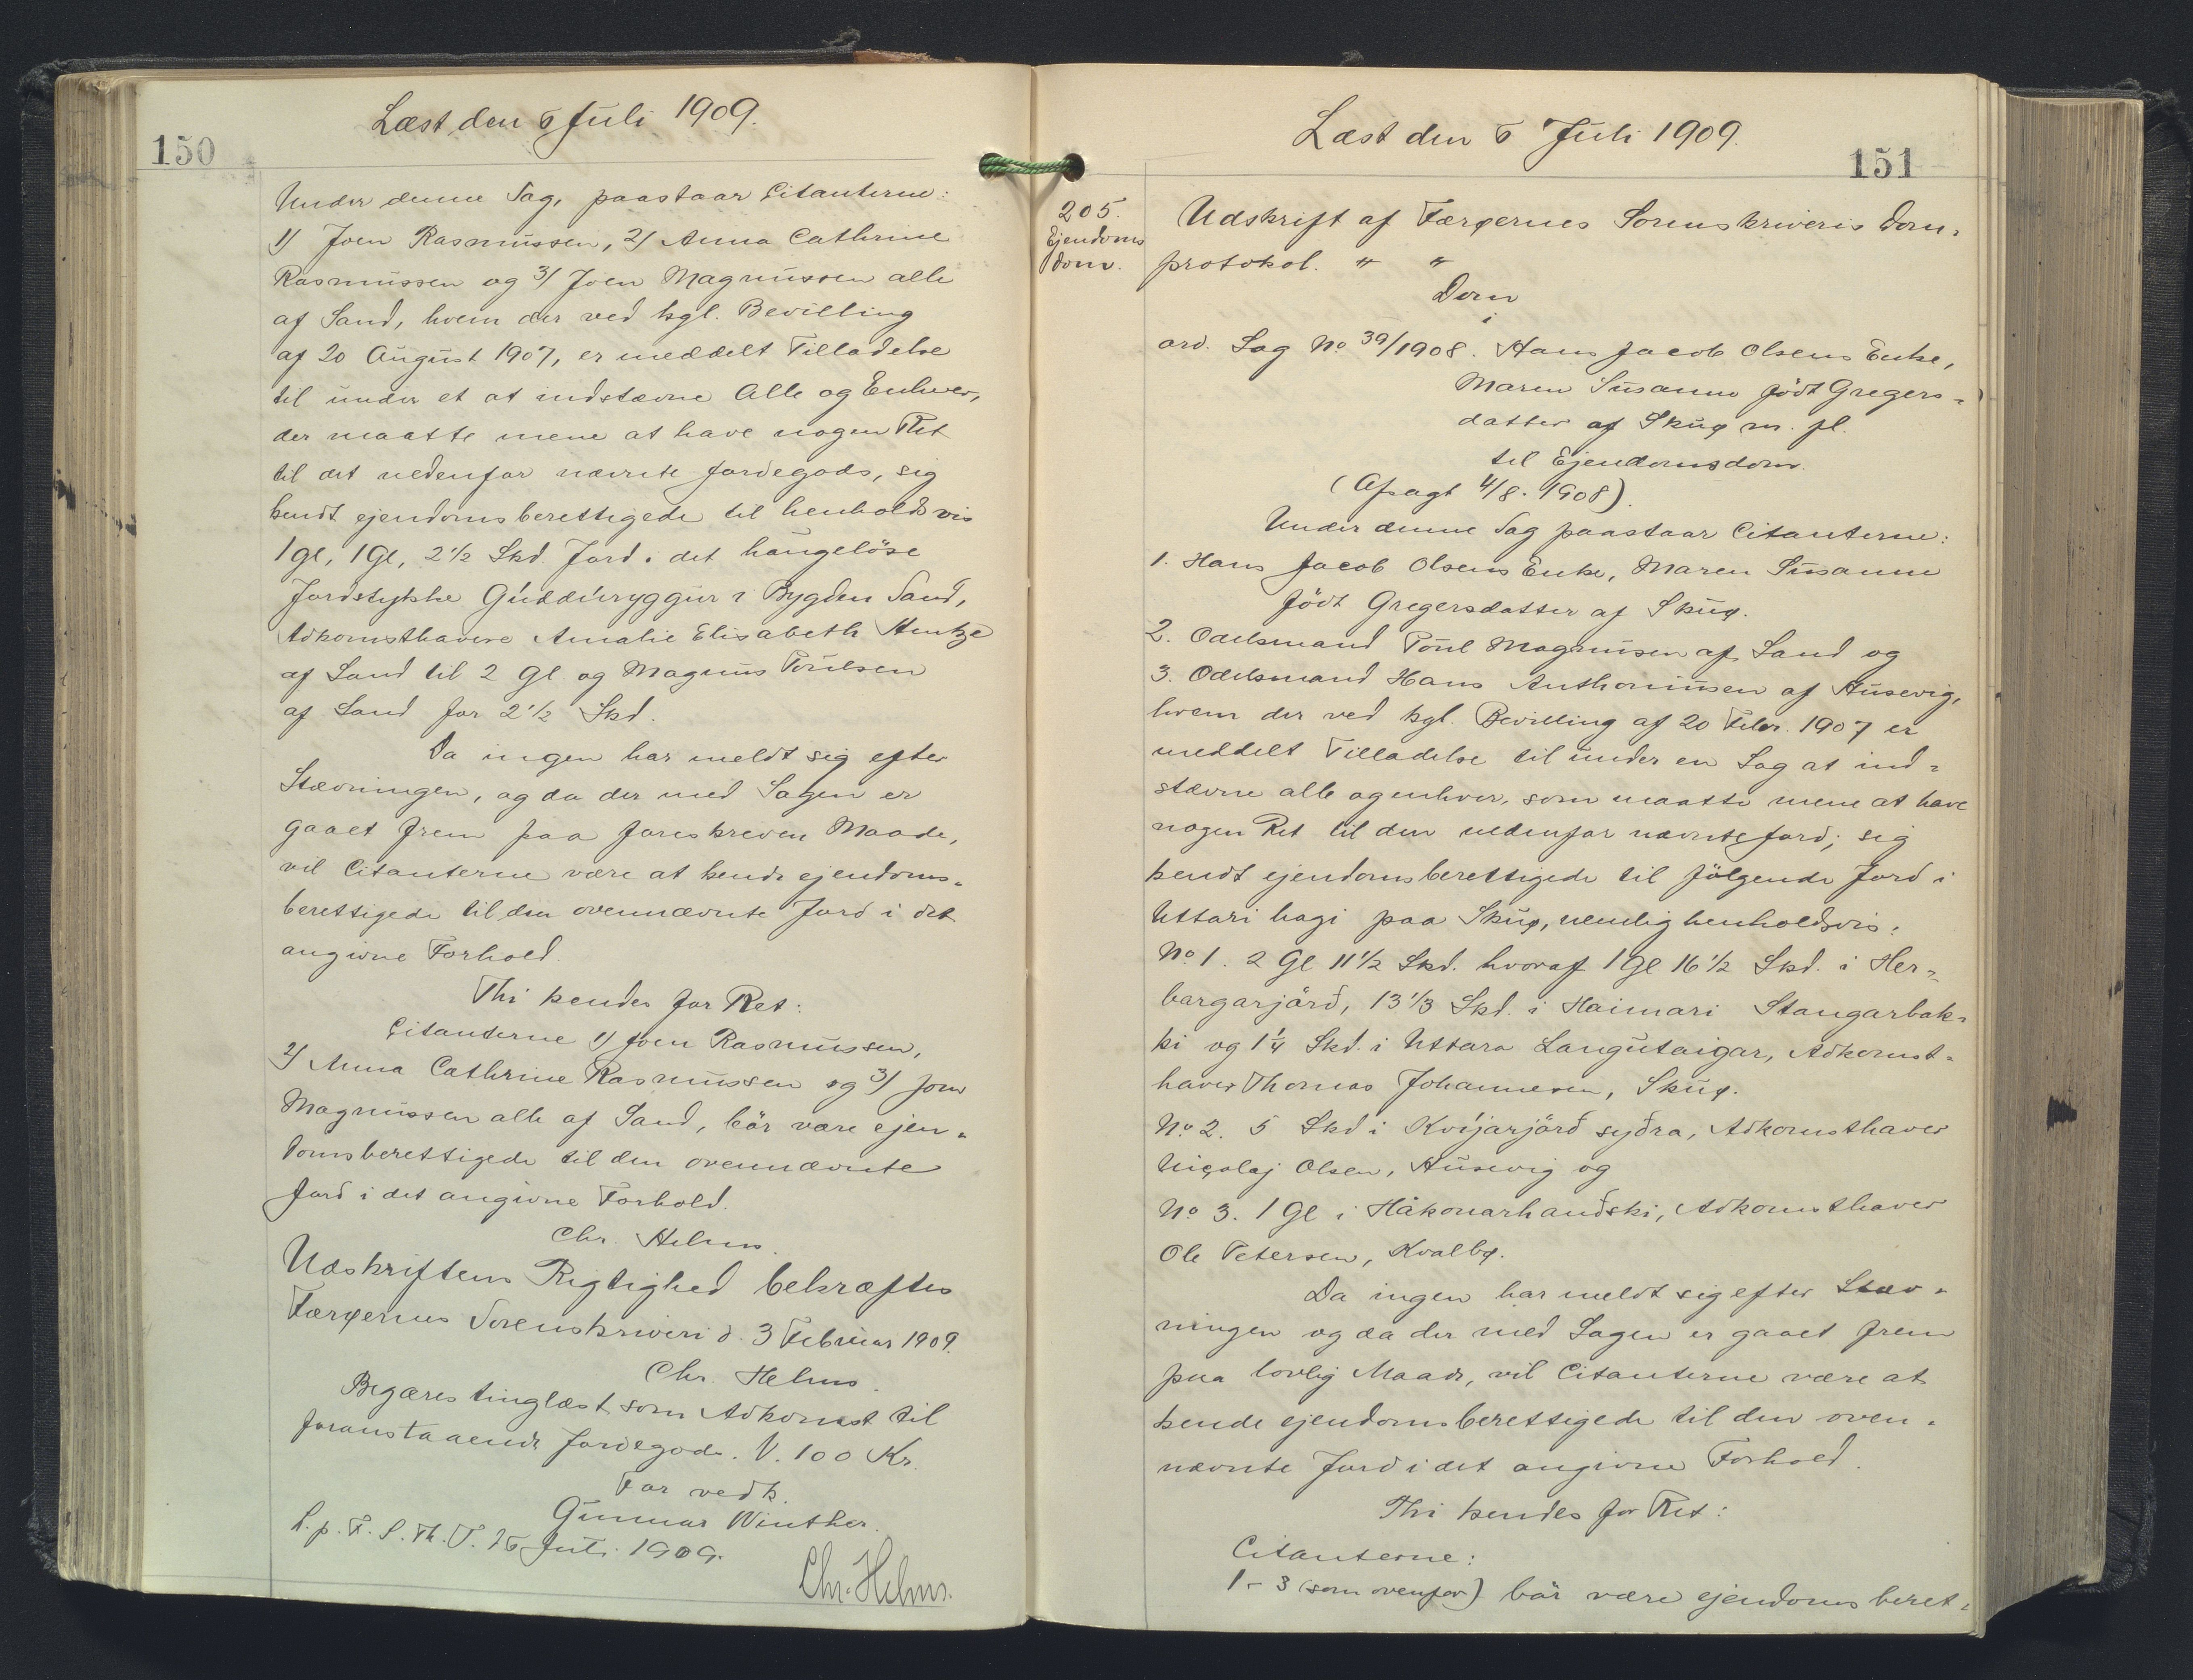 150
Læst den 6 Juli 1909.
Under denne Sag, paastaar Citanterne:
1) Joen Rasmussen, 2) Anna Cathrine
Rasmussen og 3) Joen Magnussen alle
af Sand, hvem der ved kgl. Bevilling
af 20 August 1907, er meddelt Tilladelse
til under et at indstævne Alle og Enhver,
der maatte mene at have nogen Ret
til det nedenfor nævnte Jordegods, sig
kendt ejendomsberettigede til henholdsvis
1 Gl, 1 Gl, 2 1/2 Skd. Jord i det haugeløse
Jordstykke Gúddúryggur i Bygden Sand,
Adkomsthavere Amalie Elisabeth Hentze
af Sand til 2 Gl og Magnus Poulsen
af Sand for 2 1/2 Skd.
Da ingen har meldt sig efter
Stævningen, og da der med Sagen er
gaaet frem paa foreskreven Maade,
vil Citanterne være at kende ejendoms-
berettigede til den ovennævnte Jord i det
angivne Forhold.
Thi kendes for Ret:
Citanterne 1) Joen Rasmussen,
2) Anna Cathrine Rasmussen og 3) Joen
Magnussen alle af Sand, bör være ejen-
domsberettigede til den ovennævnte
Jord i det angivne Forhold.
Chr. Helms.
Udskriftens Rigtighed bekræftes
Færøernes Sorenskriveri d. 3 Februar 1909.
Chr. Helms.
Begæres tinglæst som Adkomst til
foranstaaende Jordegods. V. 100 Kr.
For vedk.
Gunnar Winther.
L. p. F. S. Th. V. 16 Juli 1909.
Chr. Helms.
Læst den 6 Juli 1909.
151
205.
Ejendoms
dom.
Udskrift af Færøernes Sorenskriveris Dom-
protokol. " "
Dom
i
ord. Sag No 39/1908. Hans Jacob Olsens Enke,
Maren Susanne født Gregers-
datter af Skuø m. fl.
til Ejendomsdom.
(Afsagt 4/8. 1908).
Under denne Sag paastaar Citanterne:
1. Hans Jacob Olsens Enke, Maren Susanne
födt Gregersdatter af Skuø.
2. Odelsmand Poul Magnusen af Sand og
3. Odelsmand Hans Anthoniusen af Husevig,
hvem der ved kgl. Bevilling af 20 Febr. 1907 er
meddelt Tilladelse til under en Sag at ind-
stævne alle og enhver, som maatte mene at have
nogen Ret til den nedenfor nævnte Jord; sig
kendt ejendomsberettigede til fölgende Jord i
Uttari hagi paa Skuø, nemlig henholdsvis:
No 1. 2 Gl 11 1/2 Skd. hvoraf 1 Gl 16 1/2 Skd. i Her-
bargarjörd, 13 1/3 Skd. i Haimari Stangarbak-
ki og 1 1/4 Skd. i Uttara Langutaigar, Adkomst-
haver Thomas Johannesen, Skuø.
No 2. 5 Skd i Kvíjarjörd syðra, Adkomsthaver
Nicolaj Olsen, Husevig og
No 3. 1 Gl i Håkonarhandski, Adkomsthaver
Ole Petersen, Kvalbø.
Da ingen har meldt sig efter Stæv-
ningen og da der med Sagen er gaaet frem
paa lovlig Maade, vil Citanterne være at
kende ejendomsberettigede til den oven-
nævnte Jord i det angivne Forhold.
Thi kendes for Ret:
Citanterne:
1-3 (som ovenfor) bör være ejendomsberet-